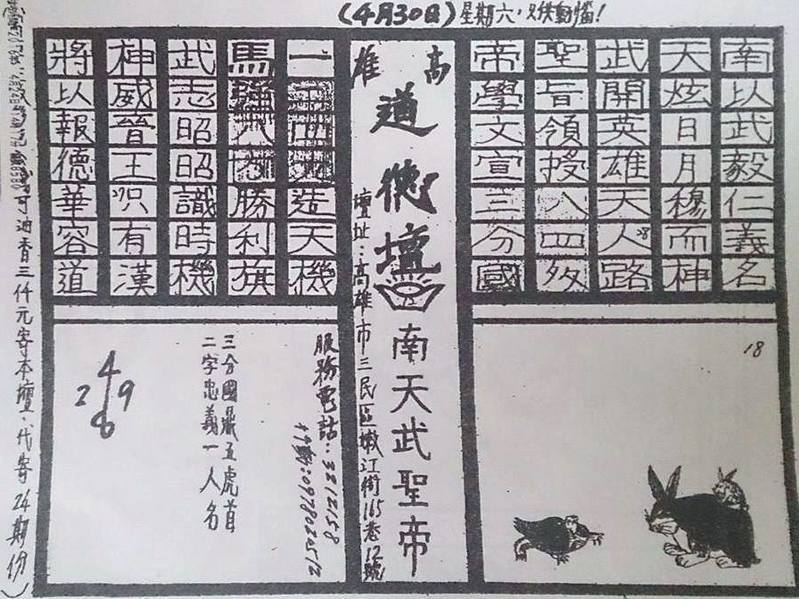 (4月30日)星期六,
南以武毅仁義名
天炫日月穆而神
武開英雄天人路
聖旨領授八四
帝學文宣三分國
18
高雄
道德壇
南天武聖帝
壇址:高雄市三民區嫩江街165巷12號
一造天機
馬勝利旗
武志昭昭識時機
神威晉王有漢
將以報德華容道
服務電話:3212158
三分國鼎五虎首
二字忠義一人名
4
2 9
8
可油香三仟元寄本壇.代寄24期份)